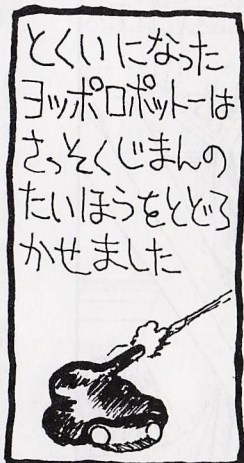 とくいになった
ヨッポロポットーは
さっそくじまんの
たいほうをとどろ
かせました